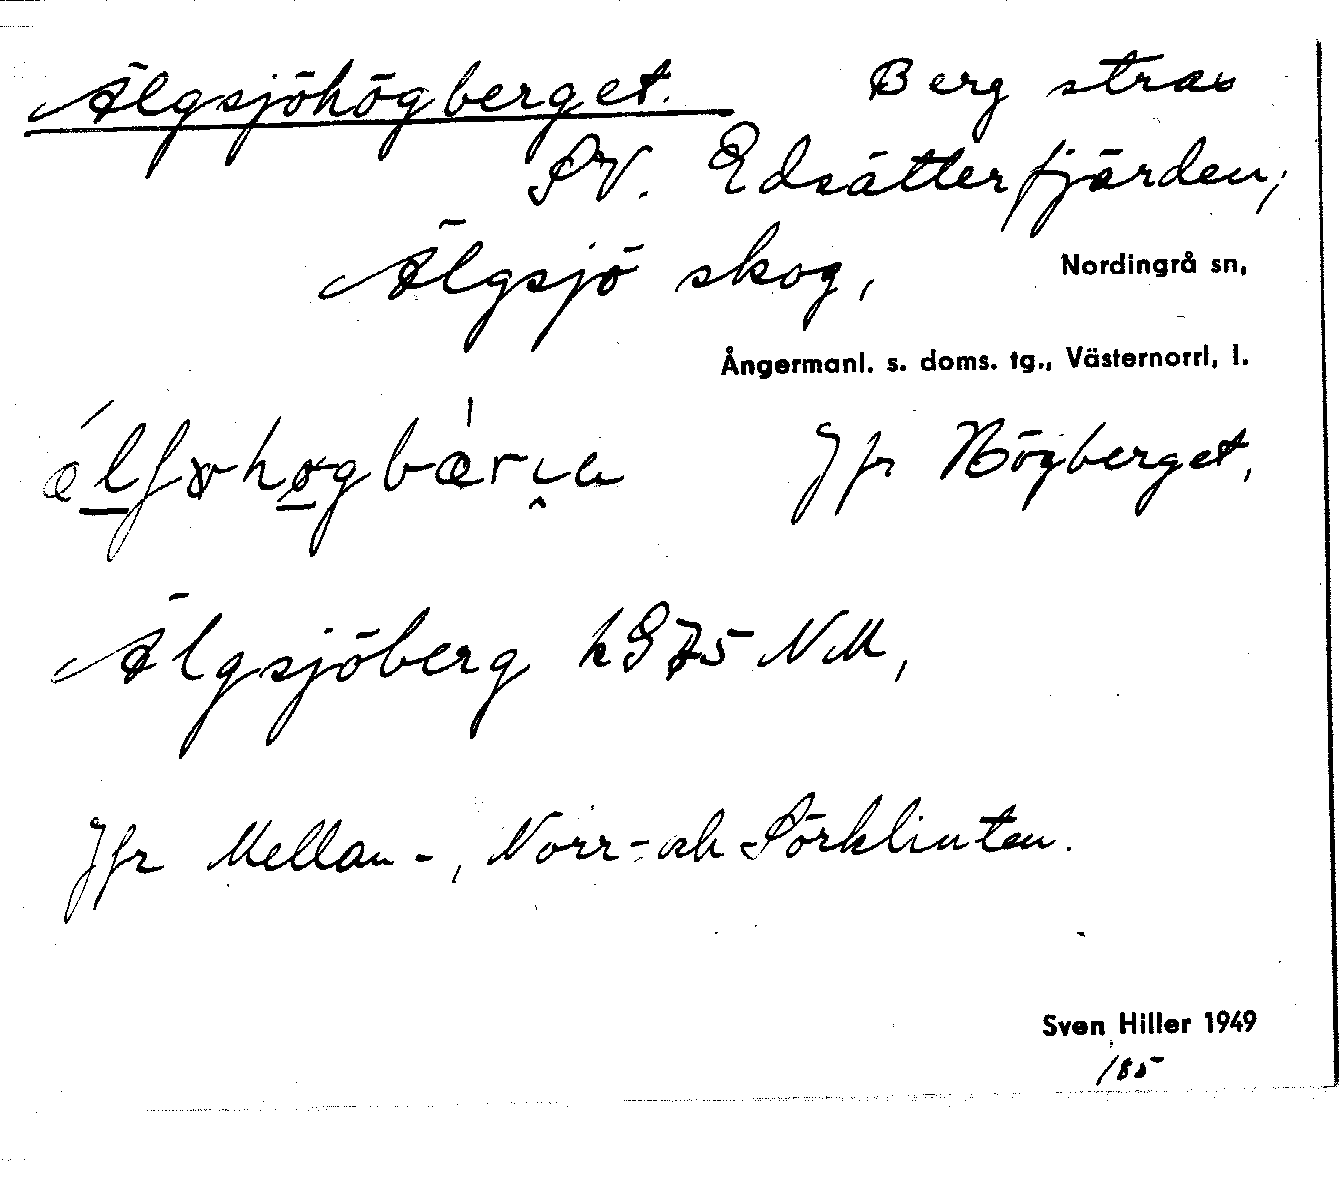 Älgsjöhögberget. Berg strax
SV. Edsätterfjärden,
Älgsjö skog, Nordingrå sn,
Ångermanl. s. doms. tg., Västernorrl, l.
Jfr Högberget,
Älgsjöberg hS75 NM,
Jfr Mellan-, Norr- och Sörklinten.
Sven Hiller 1949
185